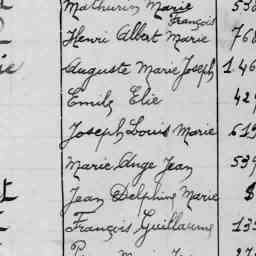 Mathurin Marie
François
Henri Albert Marie 768
Auguste Marie Joseph 1.46
Emile Elie 429
Joseph Louis Marie 619
Marie Ange Jean 539
Jean Delphine Marie
François Guillaume 135